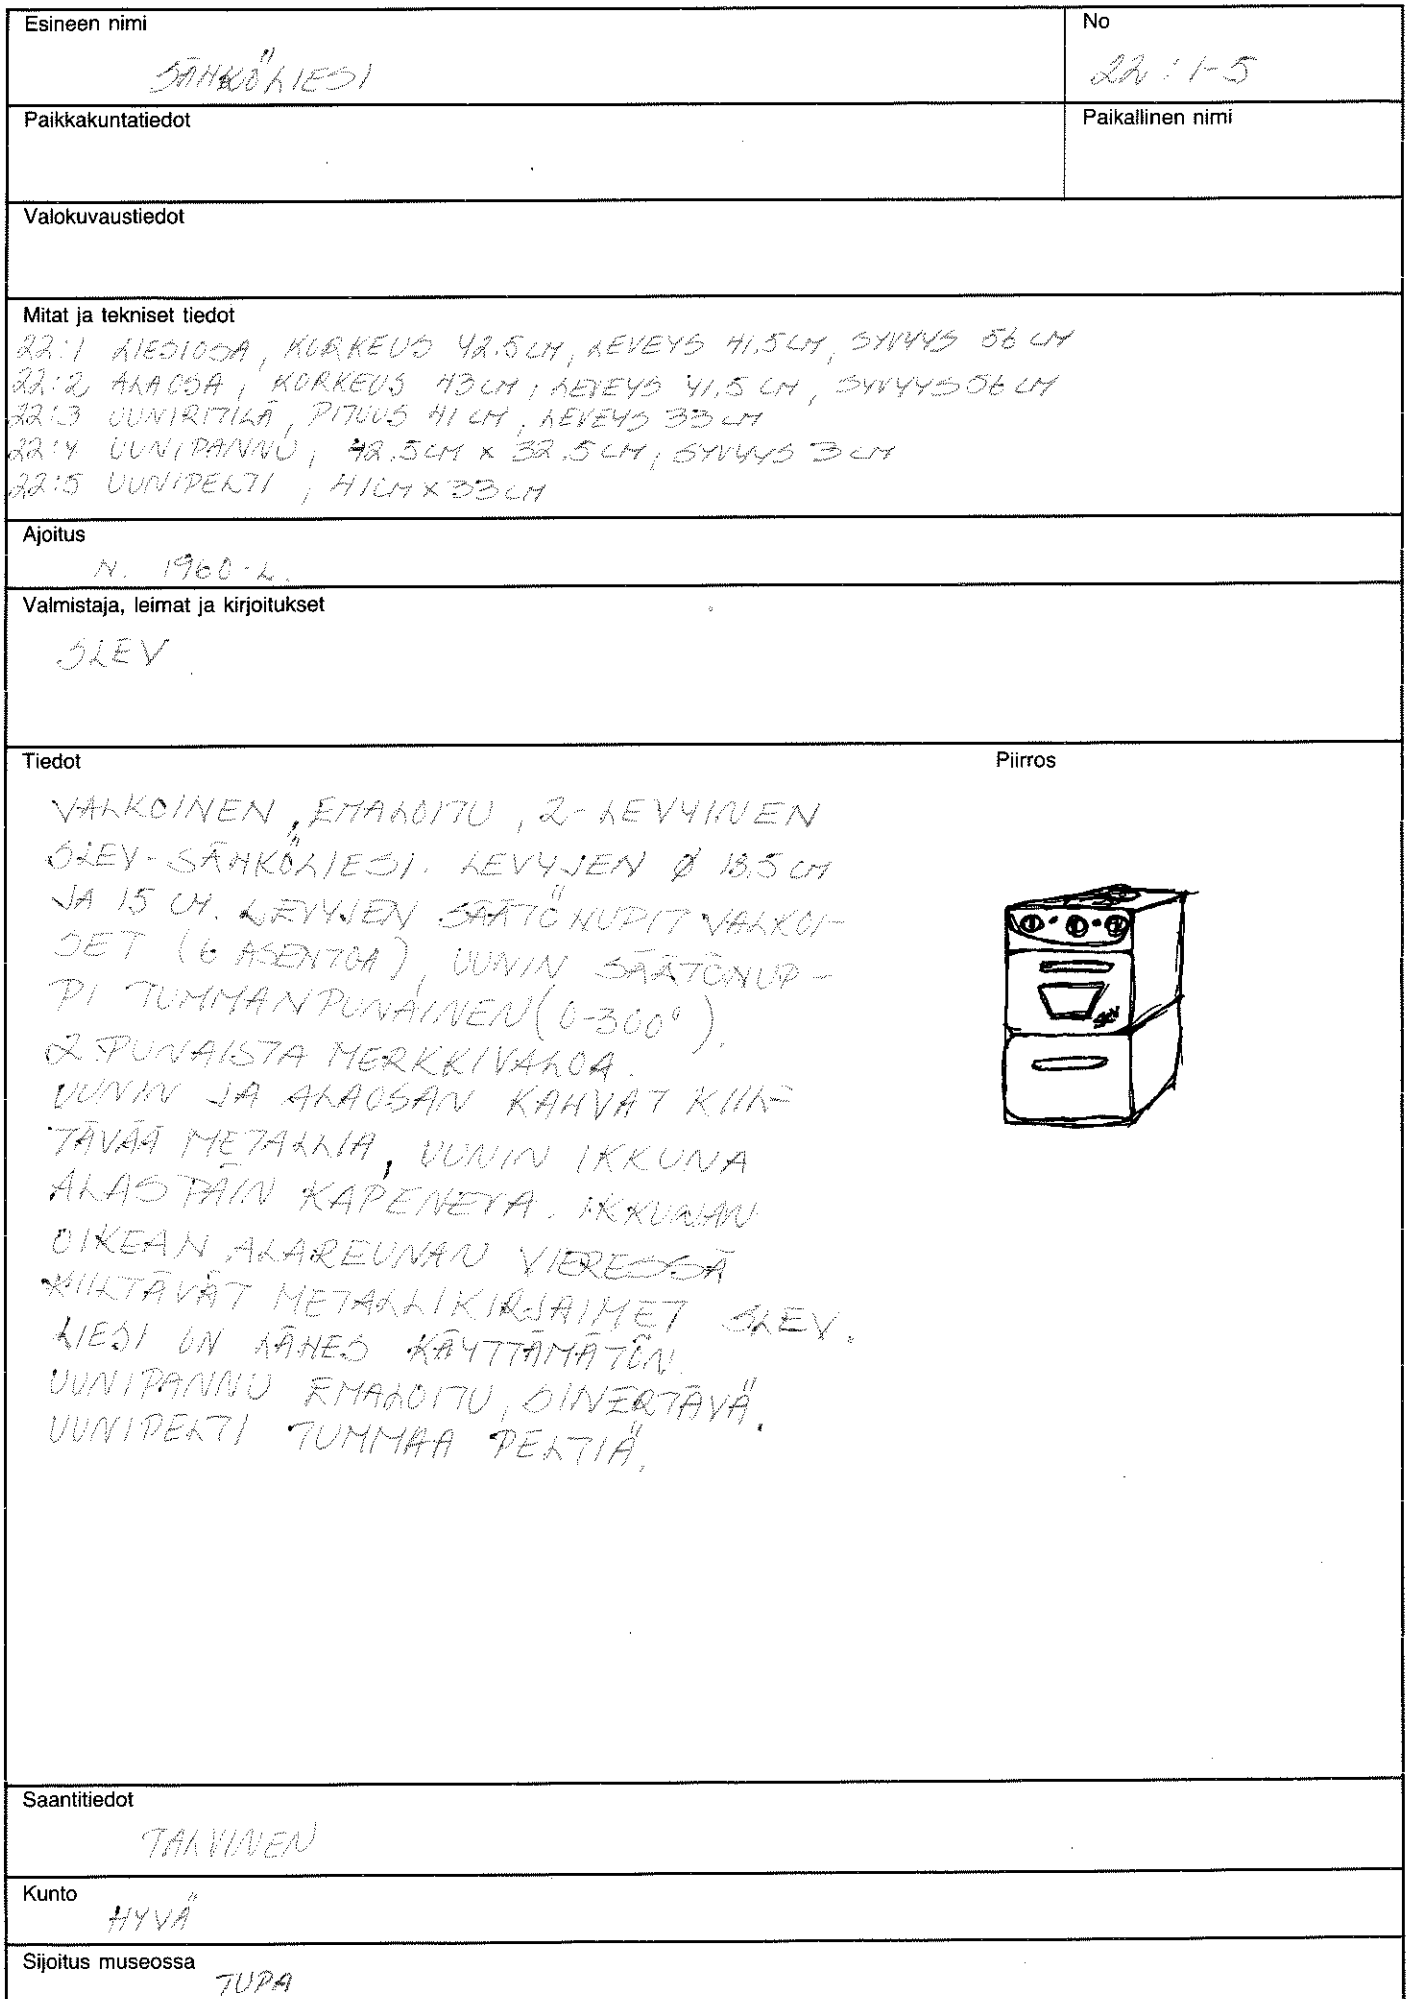 Esineen nimi
No
SÄHKÖLIESI
22:1-5
Paikkakuntatiedot
Paikallinen nimi
Valokuvaustiedot
Mitat ja tekniset tiedot
22:1 LIESIOSA, KORKEUS 42.5 CM, LEVEYS 41.5 CM, SYVYYS 56 CM
22:2 ALAOSA, KORKEUS 43 CM, LEVEYS 41.5 CM, SYVYYS 56 CM
22:3 UUNIRITILÄ, PITUUS 41 CM, LEVEYS 33 CM
22:4 UUNIPANNU, 42.5 CM X 32.5 CM, SYVYYS 3 CM
22:5 UUNIPELTI, 41 CM X 33 CM
Ajoitus
N. 1960-L.
Valmistaja, leimat ja kirjoitukset
SLEV
Tiedot
Piirros
VALKOINEN, EMALOITU, 2-LEVYINEN
SLEV-SÄHKÖLIESI. LEVYJEN Ø 18.5 CM
JA 15 CM. LEVYJEN SÄÄTÖNUPIT VALKOI-
SET (6 ASENTOA), UUNIN SÄÄTÖNUP-
PI TUMMANPUNAINEN (0-300°).
2 PUNAISTA MERKKIVALOA.
UUNIN JA ALAOSAN KAHVAT KIIL-
TÄVÄÄ METALLIA, UUNIN IKKUNA
ALASPÄIN KAPENEVA. IKKUNAN
OIKEAN ALAREUNAN VIERESSÄ
KIILTÄVÄT METALLIKIRJAIMET SLEV.
LIESI ON LÄHES KÄYTTÄMÄTÖN.
UUNIPANNU EMALOITU, SINERTÄVÄ.
UUNIPELTI TUMMAA PELTIÄ.
Saantitiedot
TALVINEN
Kunto
HYVÄ
Sijoitus museossa
TUPA